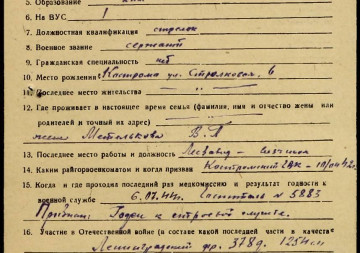 5. Образование
6. На ВУС 1
7. Должностная квалификация стрелок
8. Военное звание сержант
9. Гражданская специальность нет
10. Место рождения Кострома ул. Стрелковая, 6
11. Последнее место жительства —"—
12. Где проживает в настоящее время семья (фамилия, имя и отчество жены или
родителей и точный их адрес) —"—
жена Метелькова В. А
13. Последнее место работы и должность
14. Каким райгорвоенкоматом и когда призван Костромский
15. Когда и где проходил последний раз медкомиссию и результат годности к
военной службе 6.07.44г. госпиталь № 5883
Признан: Годен к строевой службе.
16. Участие в Отечественной войне (в составе какой последней части в качестве
Ленинградский фр. 378д. 1254